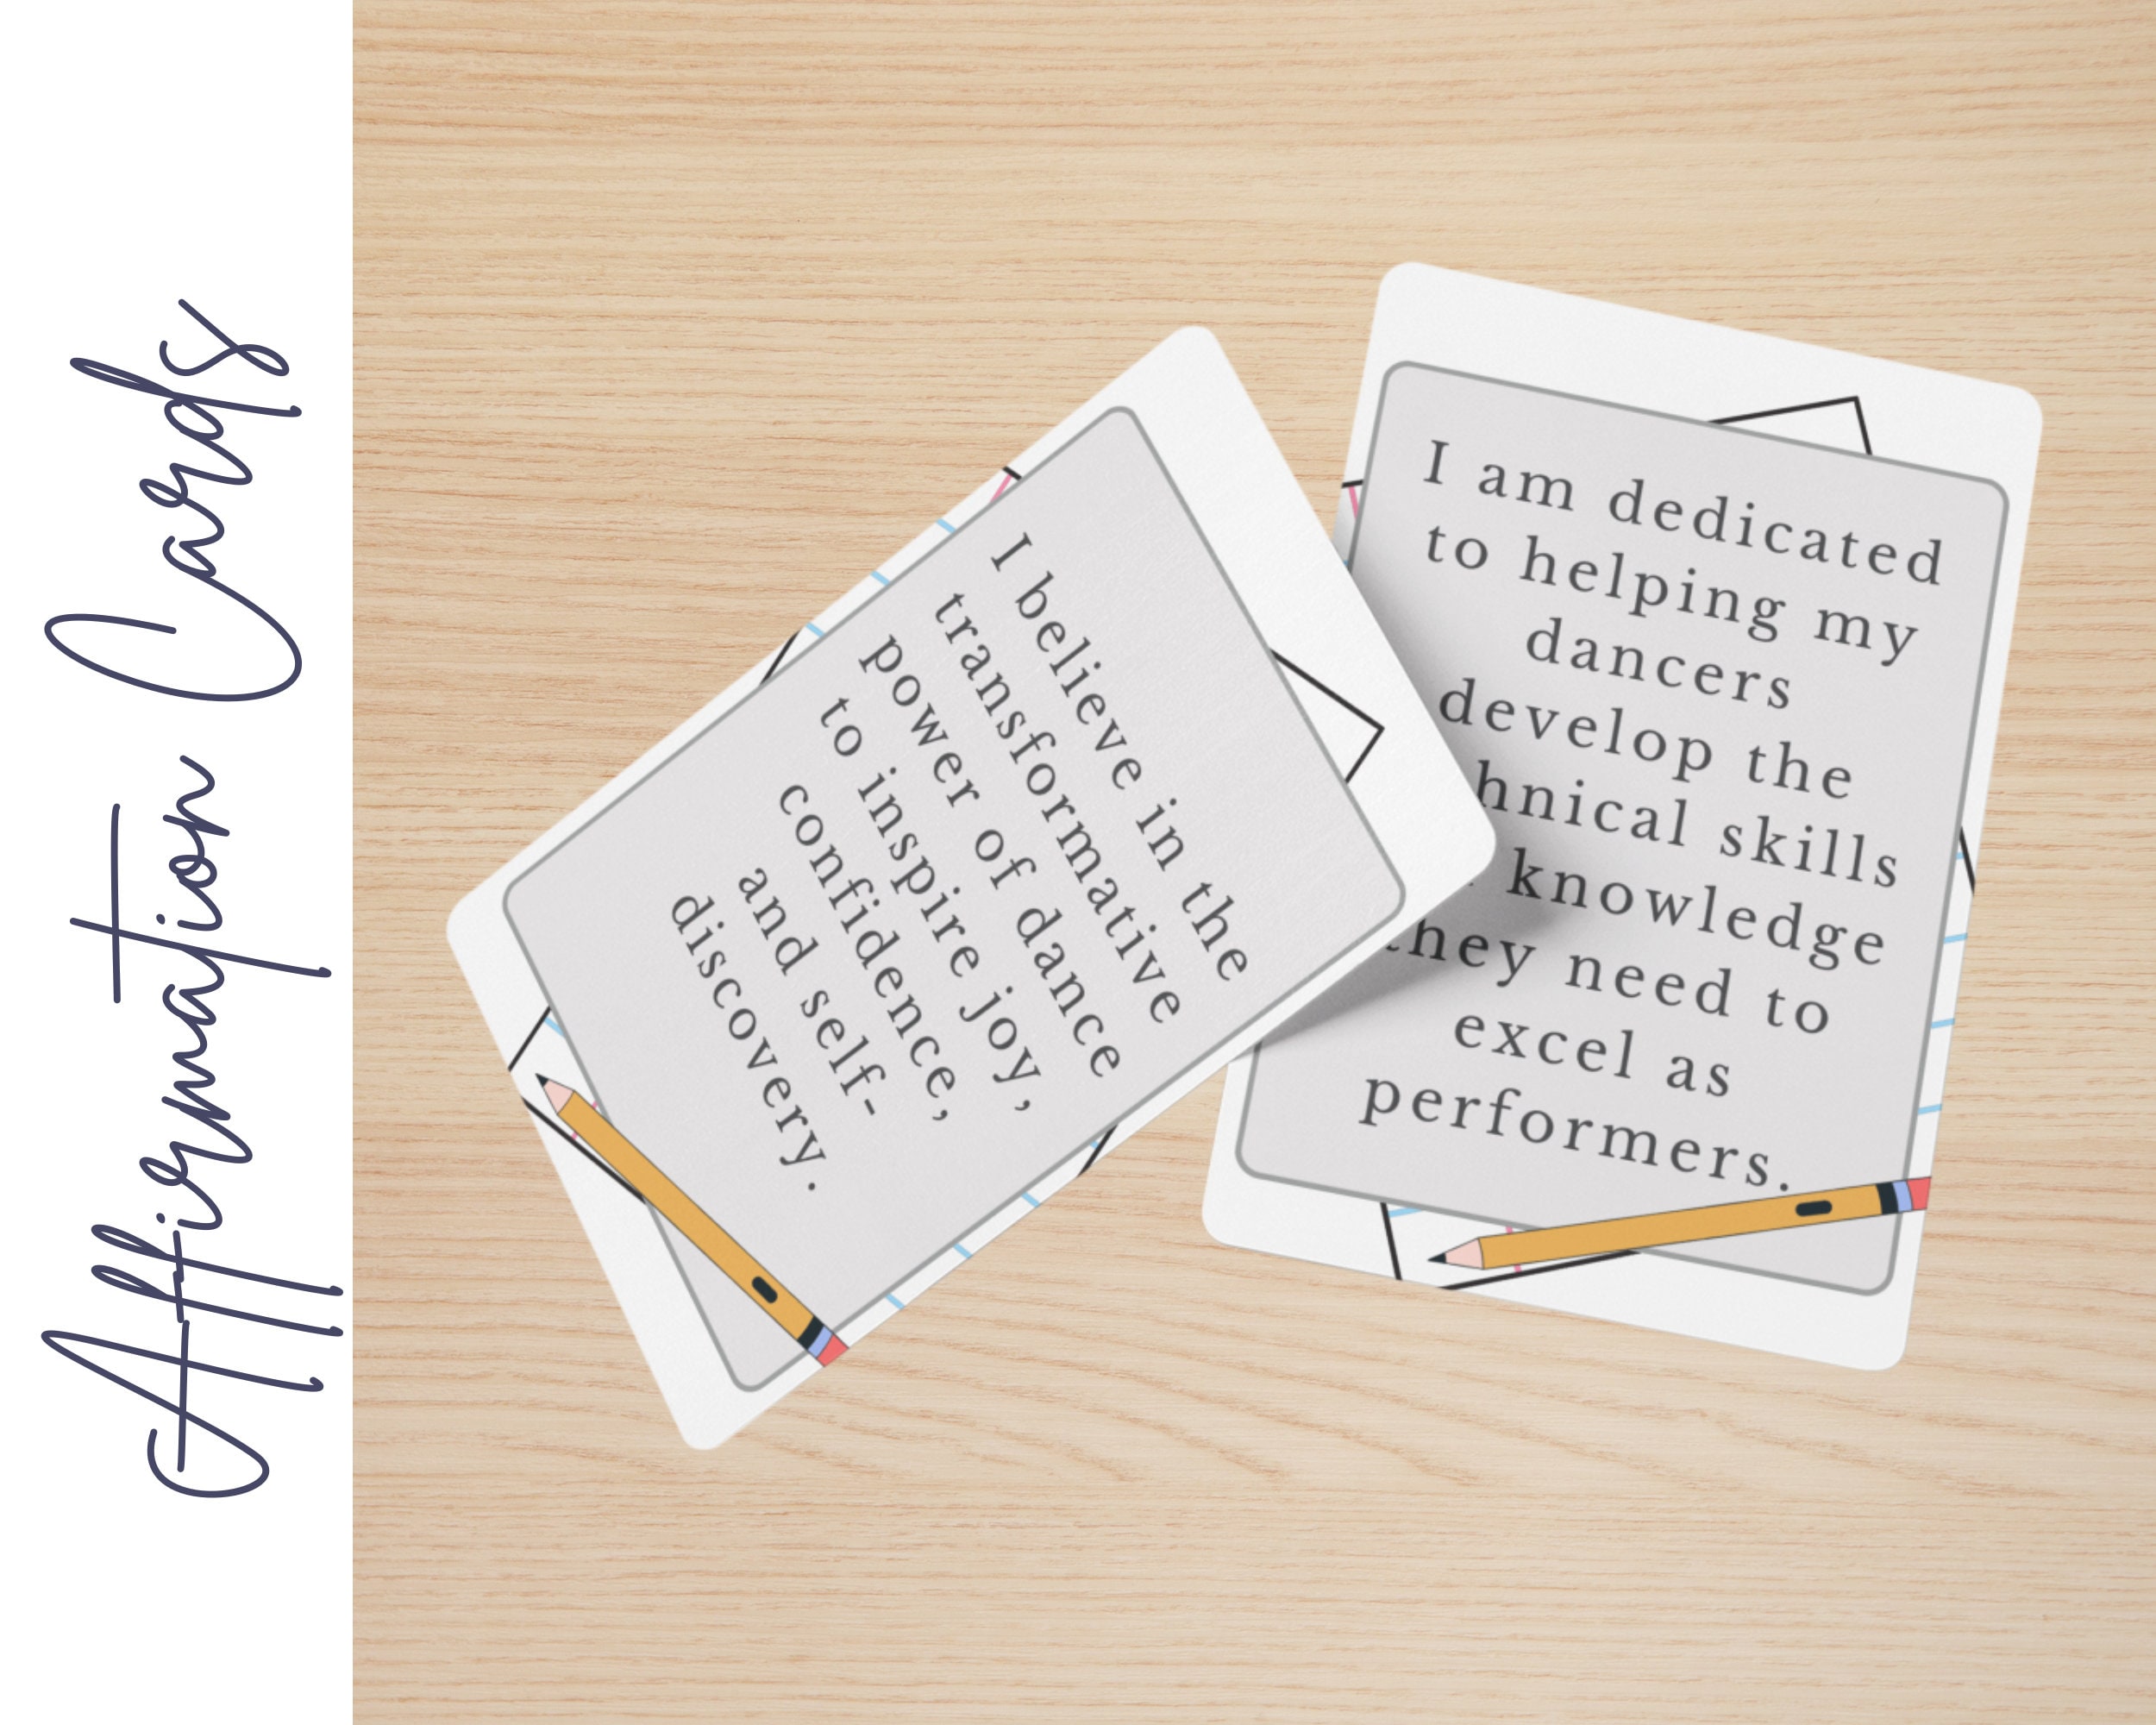 Affirmation Cards
I believe in the
transformative
power of dance
to inspire joy,
confidence,
and self-
discovery.
I am dedicated
to helping my
dancers
develop the
hnical skills
knowledge
they need to
excel as
performers.